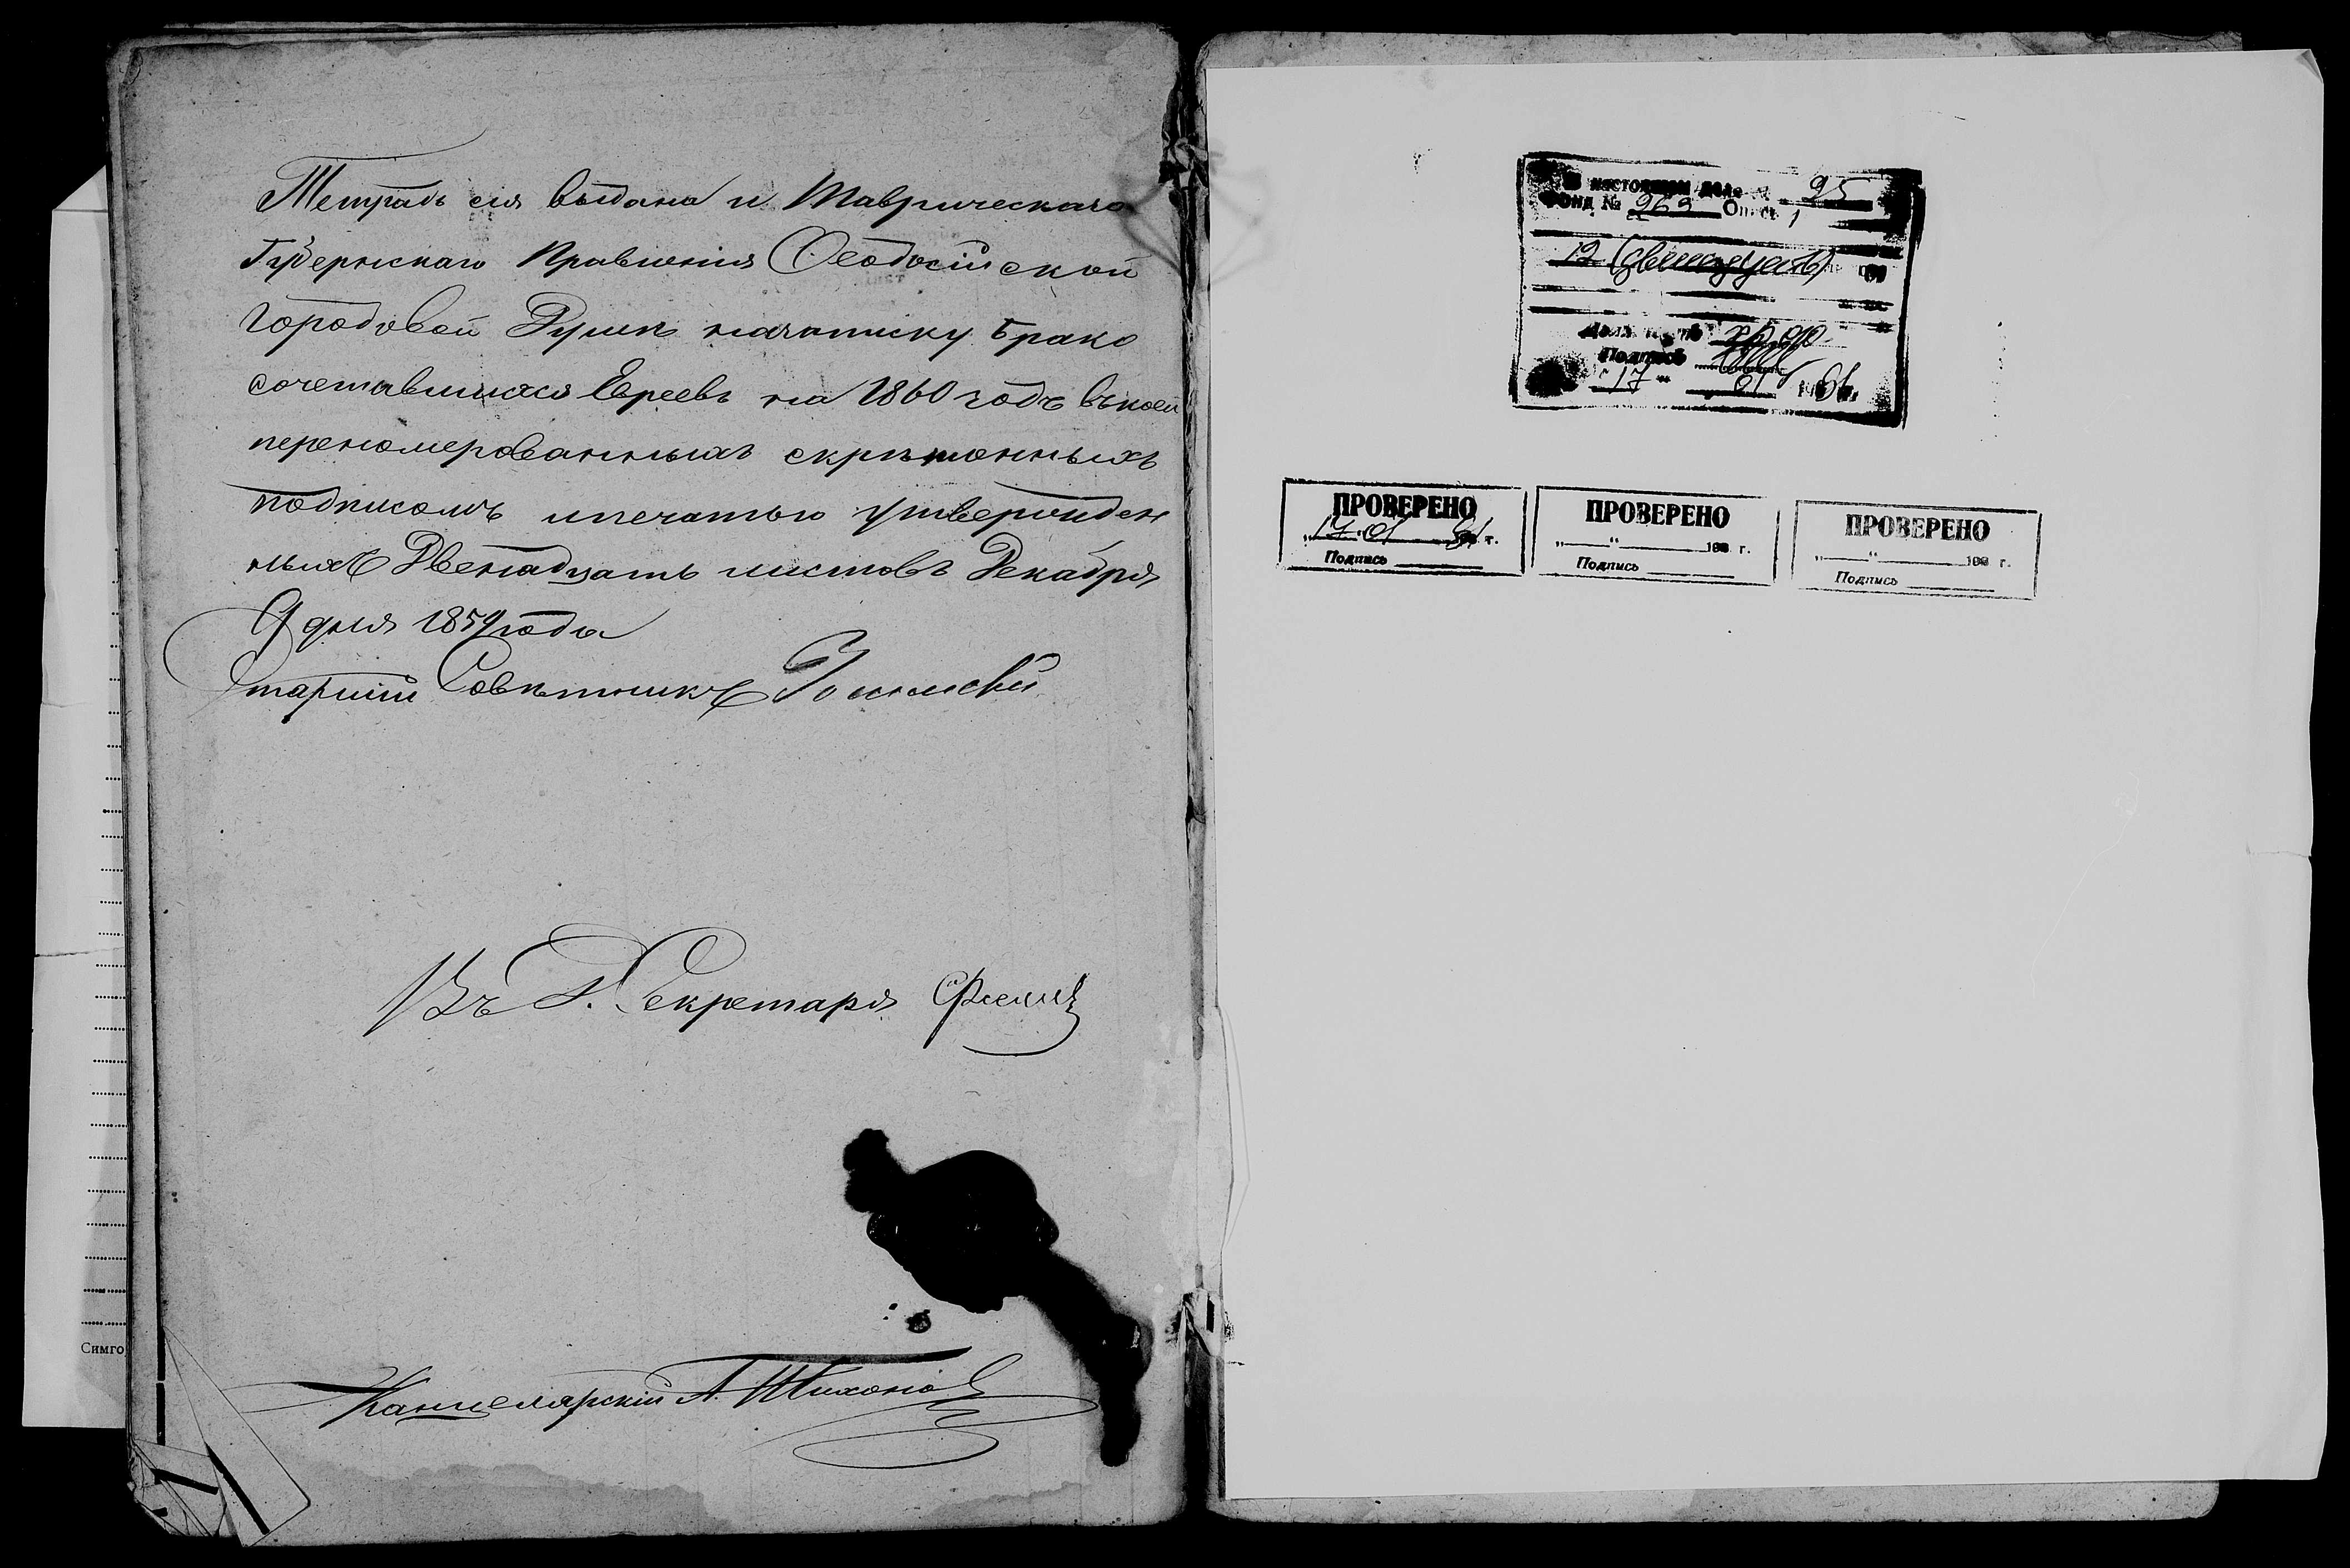 Тетрадь сія выдана и Таврическаго
Губернскаго Правленія Ѳеодосійской
городовой Думѣ на записку брако
сочетавшихся Евреевъ на 1860 годъ въ коей
переномерованныхъ скрѣпленныхъ
подписомъ и печатью утвержден
ныхъ Двенадцать листовъ Декабря
9 дня 1859 года
Старшій Совѣтникъ
Въ Д. Секретаря
Канцелярскій А. Тихонов
Симго
В настоящем деле 25
Фонд № 263 Опись 1
12 (двенадцать)
Подпись
17 01 91
ПРОВЕРЕНО
17 01 91 г.
Подпись
ПРОВЕРЕНО
„ “ 198 г.
Подпись
ПРОВЕРЕНО
„ “ 198 г.
Подпись